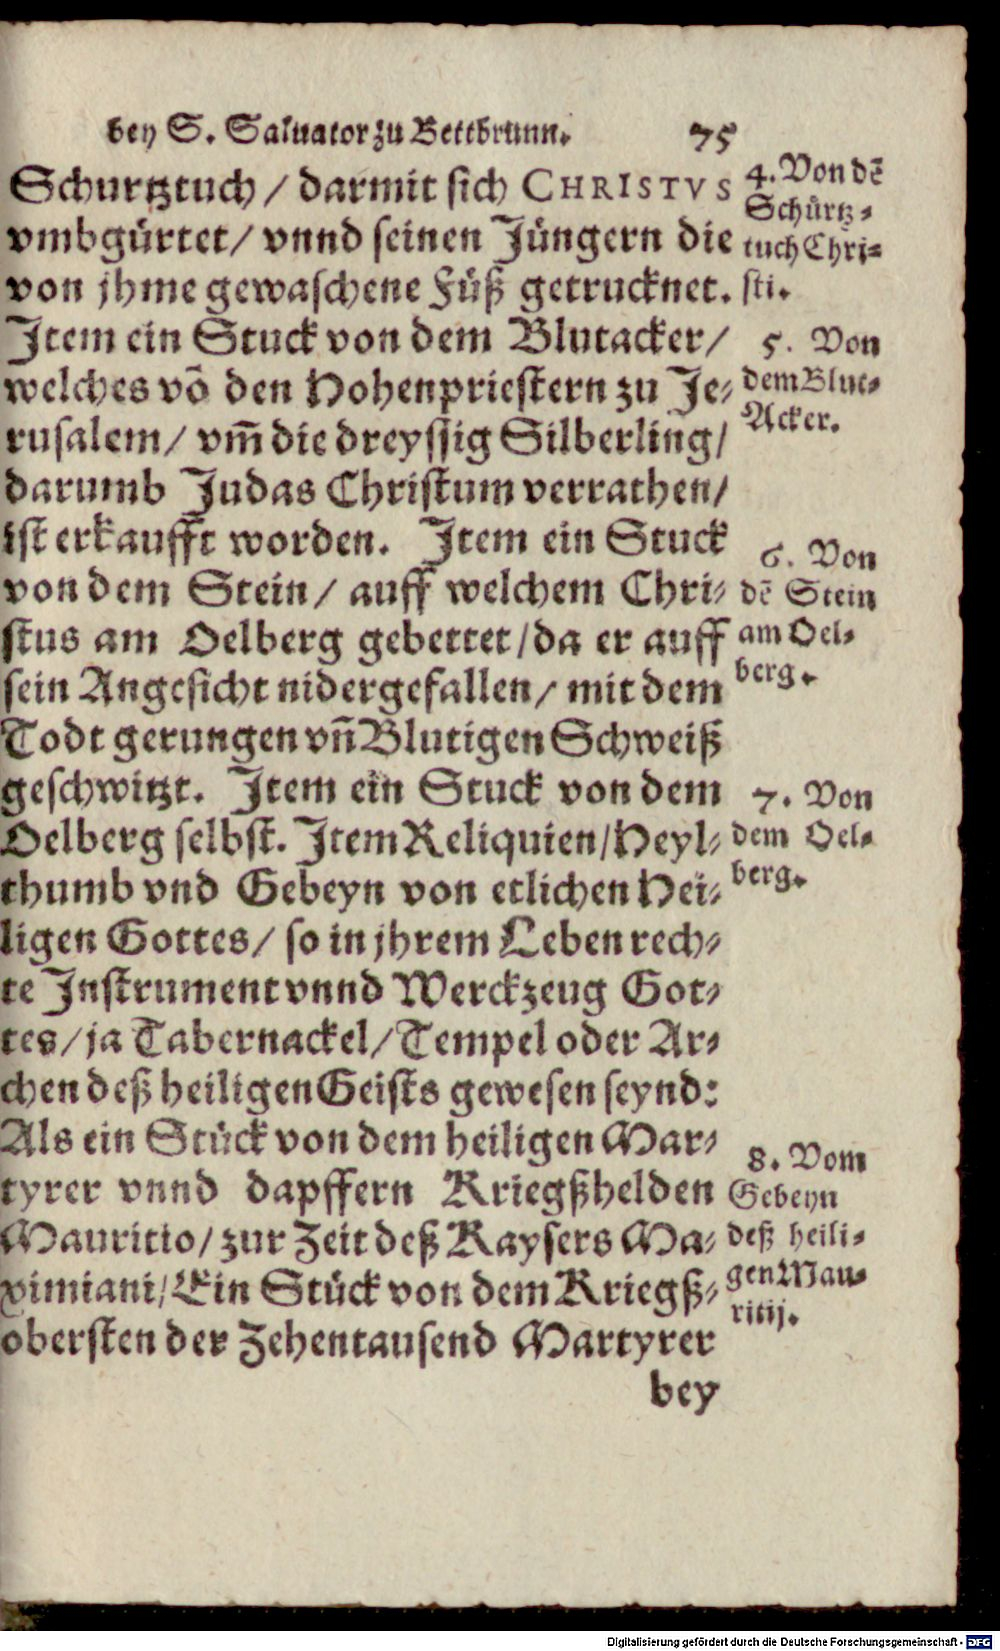 bey S. Saluator zu Bettbrunn. 75
Schurtztuch / darmit sich CHRISTVS
vmbgürtet / vnnd seinen Jüngern die
von jhme gewaschene Füß getrucknet.
Item ein Stuck von dem Blutacker /
welches võ den Hohenpriestern zu Je-
rusalem / vm̃ die dreyssig Silberling /
darumb Judas Christum verrathen /
ist erkaufft worden. Item ein Stuck
von dem Stein / auff welchem Chri-
stus am Oelberg gebettet / da er auff
sein Angesicht nidergefallen / mit dem
Todt gerungen vñ Blutigen Schweiß
geschwitzt. Item ein Stuck von dem
Oelberg selbst. Item Reliquien / Heyl-
thumb vnd Gebeyn von etlichen Hei-
ligen Gottes / so in jhrem Leben rech-
te Instrument vnnd Werckzeug Got-
tes / ja Tabernackel / Tempel oder Ar-
chen deß heiligen Geists gewesen seynd:
Als ein Stück von dem heiligen Mar-
tyrer vnnd dapffern Kriegßhelden
Mauritio / zur Zeit deß Kaysers Ma-
ximiani / Ein Stück von dem Kriegß-
obersten der Zehentausend Martyrer
bey
4. Von dẽ
Schürtz-
tuch Chri-
sti.
5. Von
dem Blut-
Acker.
6. Von
dẽ Stein
am Oel-
berg.
7. Von
dem Oel-
berg.
8. Vom
Gebeyn
deß heili-
gen Mau-
ritij.
Digitalisierung gefördert durch die Deutsche Forschungsgemeinschaft - DFG